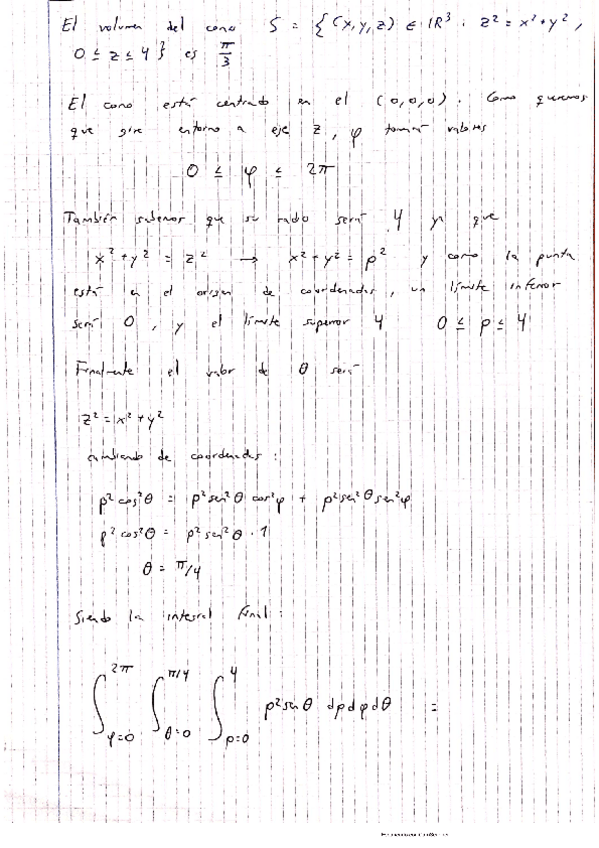 El volumen del cono S = { (x,y,z) ∈ IR³ : z² = x² + y² ,
0 ≤ z ≤ 4 } es π/3
El cono está centrado en el (0,0,0). Como queremos
que gire entorno a eje z, φ tomará valores
0 ≤ φ ≤ 2π
También sabemos que su radio será 4 ya que
x² + y² = z² → x² + y² = ρ² y como la punta
está en el origen de coordenadas, un límite inferior
será 0, y el límite superior 4 0 ≤ ρ ≤ 4
Finalmente el valor de θ será
z² = x² + y²
cambiando de coordenadas:
ρ² cos² θ = ρ² sen² θ cos² φ + ρ² sen² θ sen² φ
ρ² cos² θ = ρ² sen² θ · 1
θ = π/4
Siendo la integral final:
∫_{φ=0}^{2π} ∫_{θ=0}^{π/4} ∫_{ρ=0}^{4} ρ² sen θ dρ dφ dθ =